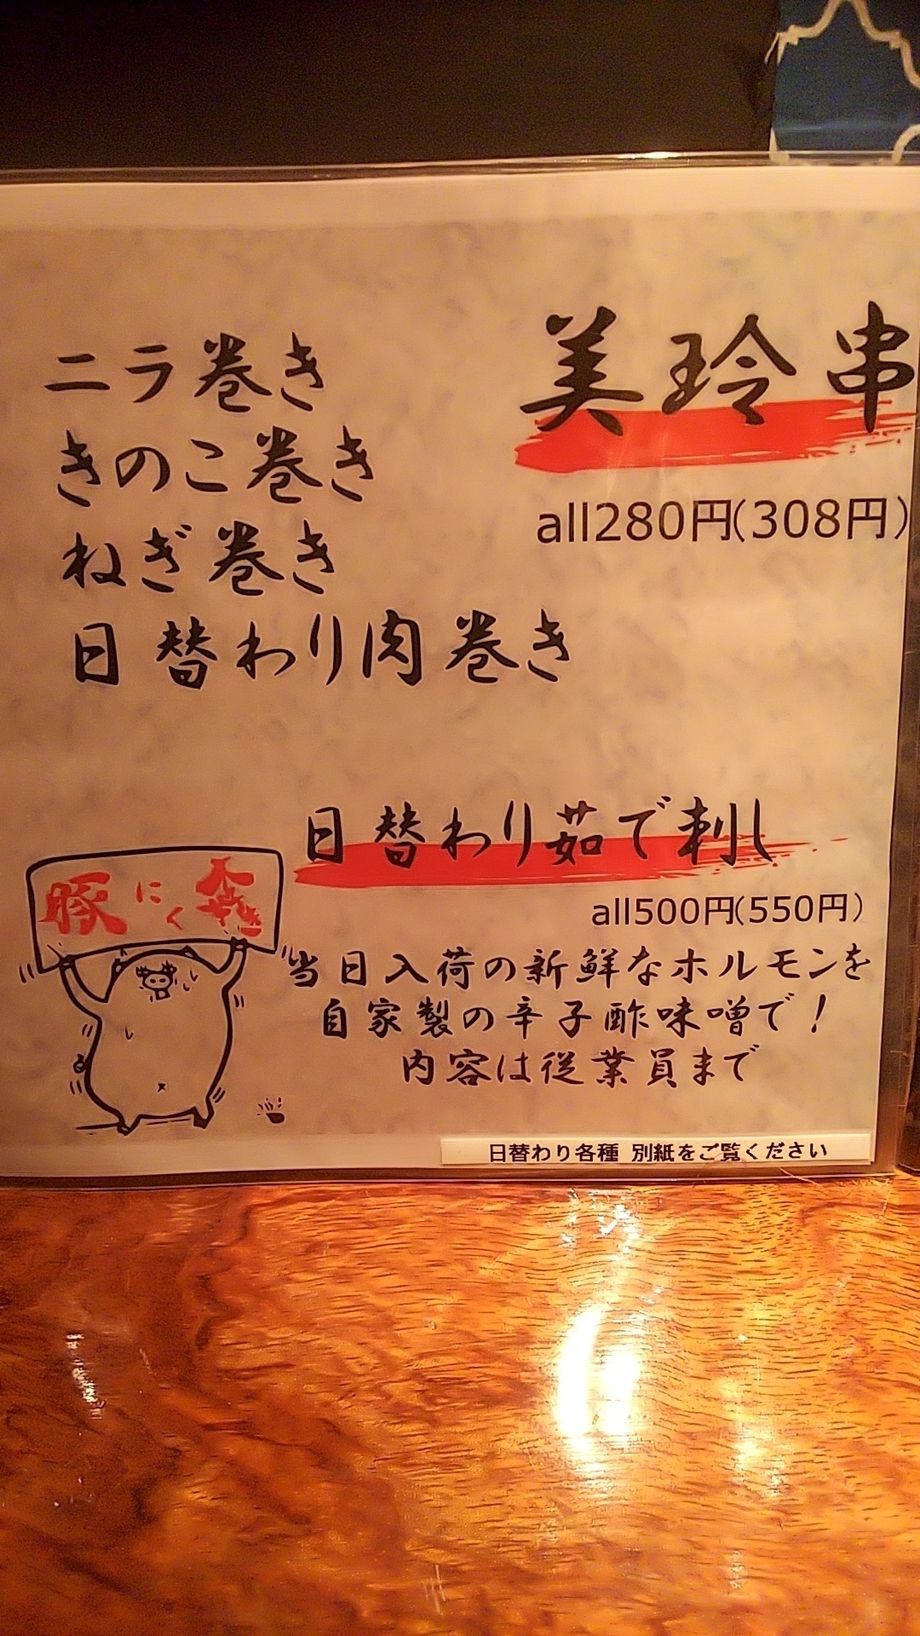 美玲串
all280円(308円)
ニラ巻き
きのこ巻き
ねぎ巻き
日替わり肉巻き
日替わり茹で刺し
all500円(550円)
当日入荷の新鮮なホルモンを
自家製の辛子酢味噌で！
内容は従業員まで
豚にく
日替わり各種 別紙をご覧ください